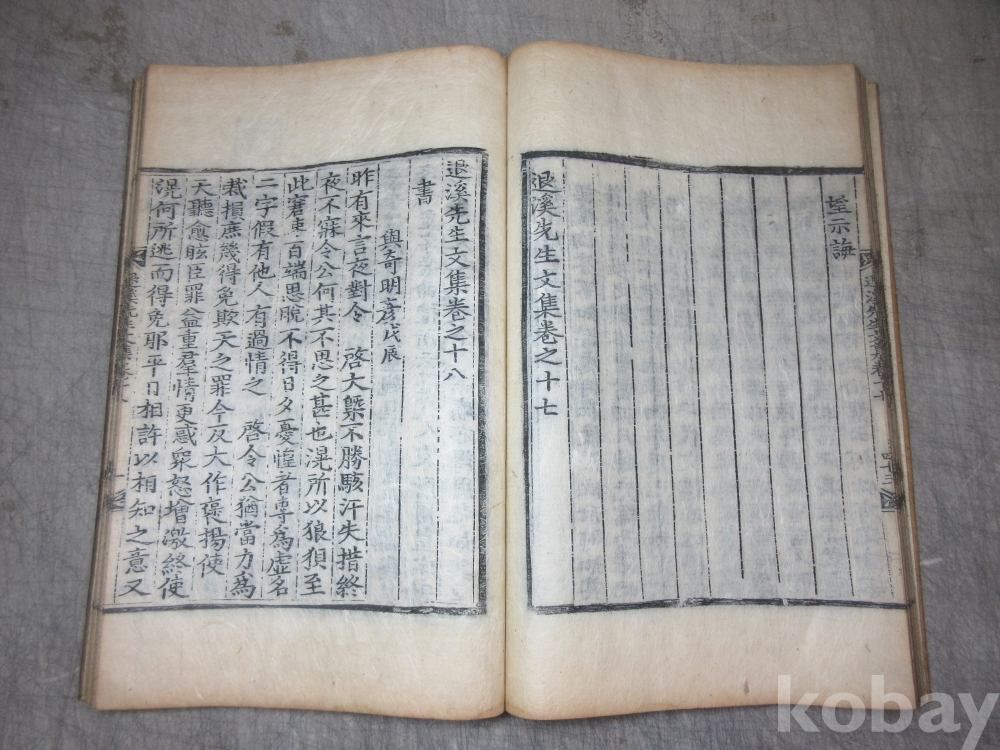 望示誨
退溪先生文集卷之十七
退溪先生文集卷之十八
書
與奇明彦 戊辰
昨有來言夜對令 啓大槩不勝駭汗失措終
夜不寐令公何其不思之甚也滉所以狼狽至
此窘束百端思脫不得日夕憂惶者専爲虛名
二字假有他人有過情之 啓令公猶當力爲
裁損庶幾得免欺天之罪今反大作褒揚使
天聽愈眩臣罪益重羣情更惑衆怒增激終使
滉何所逃而得免耶平日相許以相知之意又
kobay